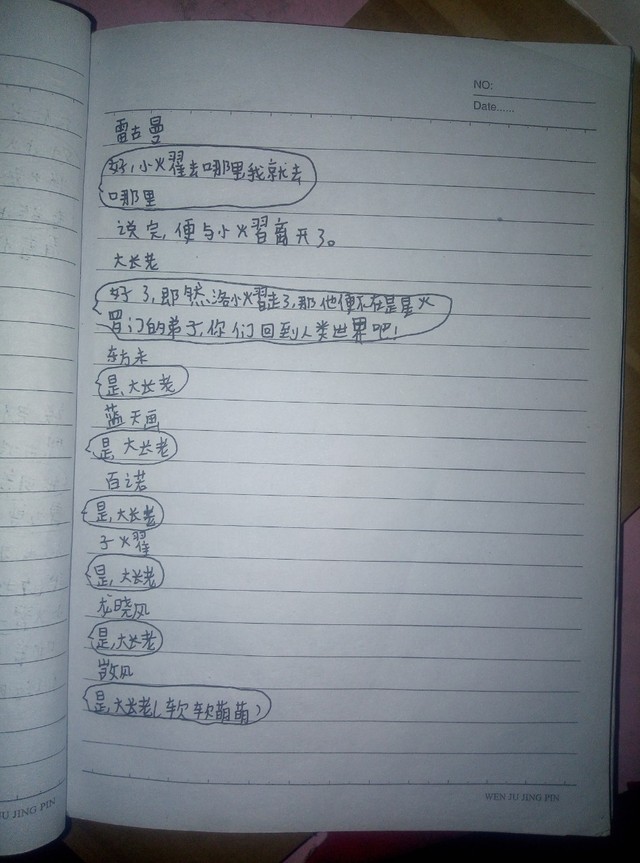 NO:
Date......
雷古曼
好,小火翟去哪里我就去
哪里
说完,便与小火習离开了。
大长老
好了,即然洛小火習走了,那他便不在是星火
門的弟子,你们回到人类世界吧!
东方末
是,大长老
蓝天画
是,大长老
百诺
是,大长老
子火翟
是,大长老
龙晓风
是,大长老
凯风
是,大长老(软软萌萌)
U JING PIN
WEN JU JING PIN